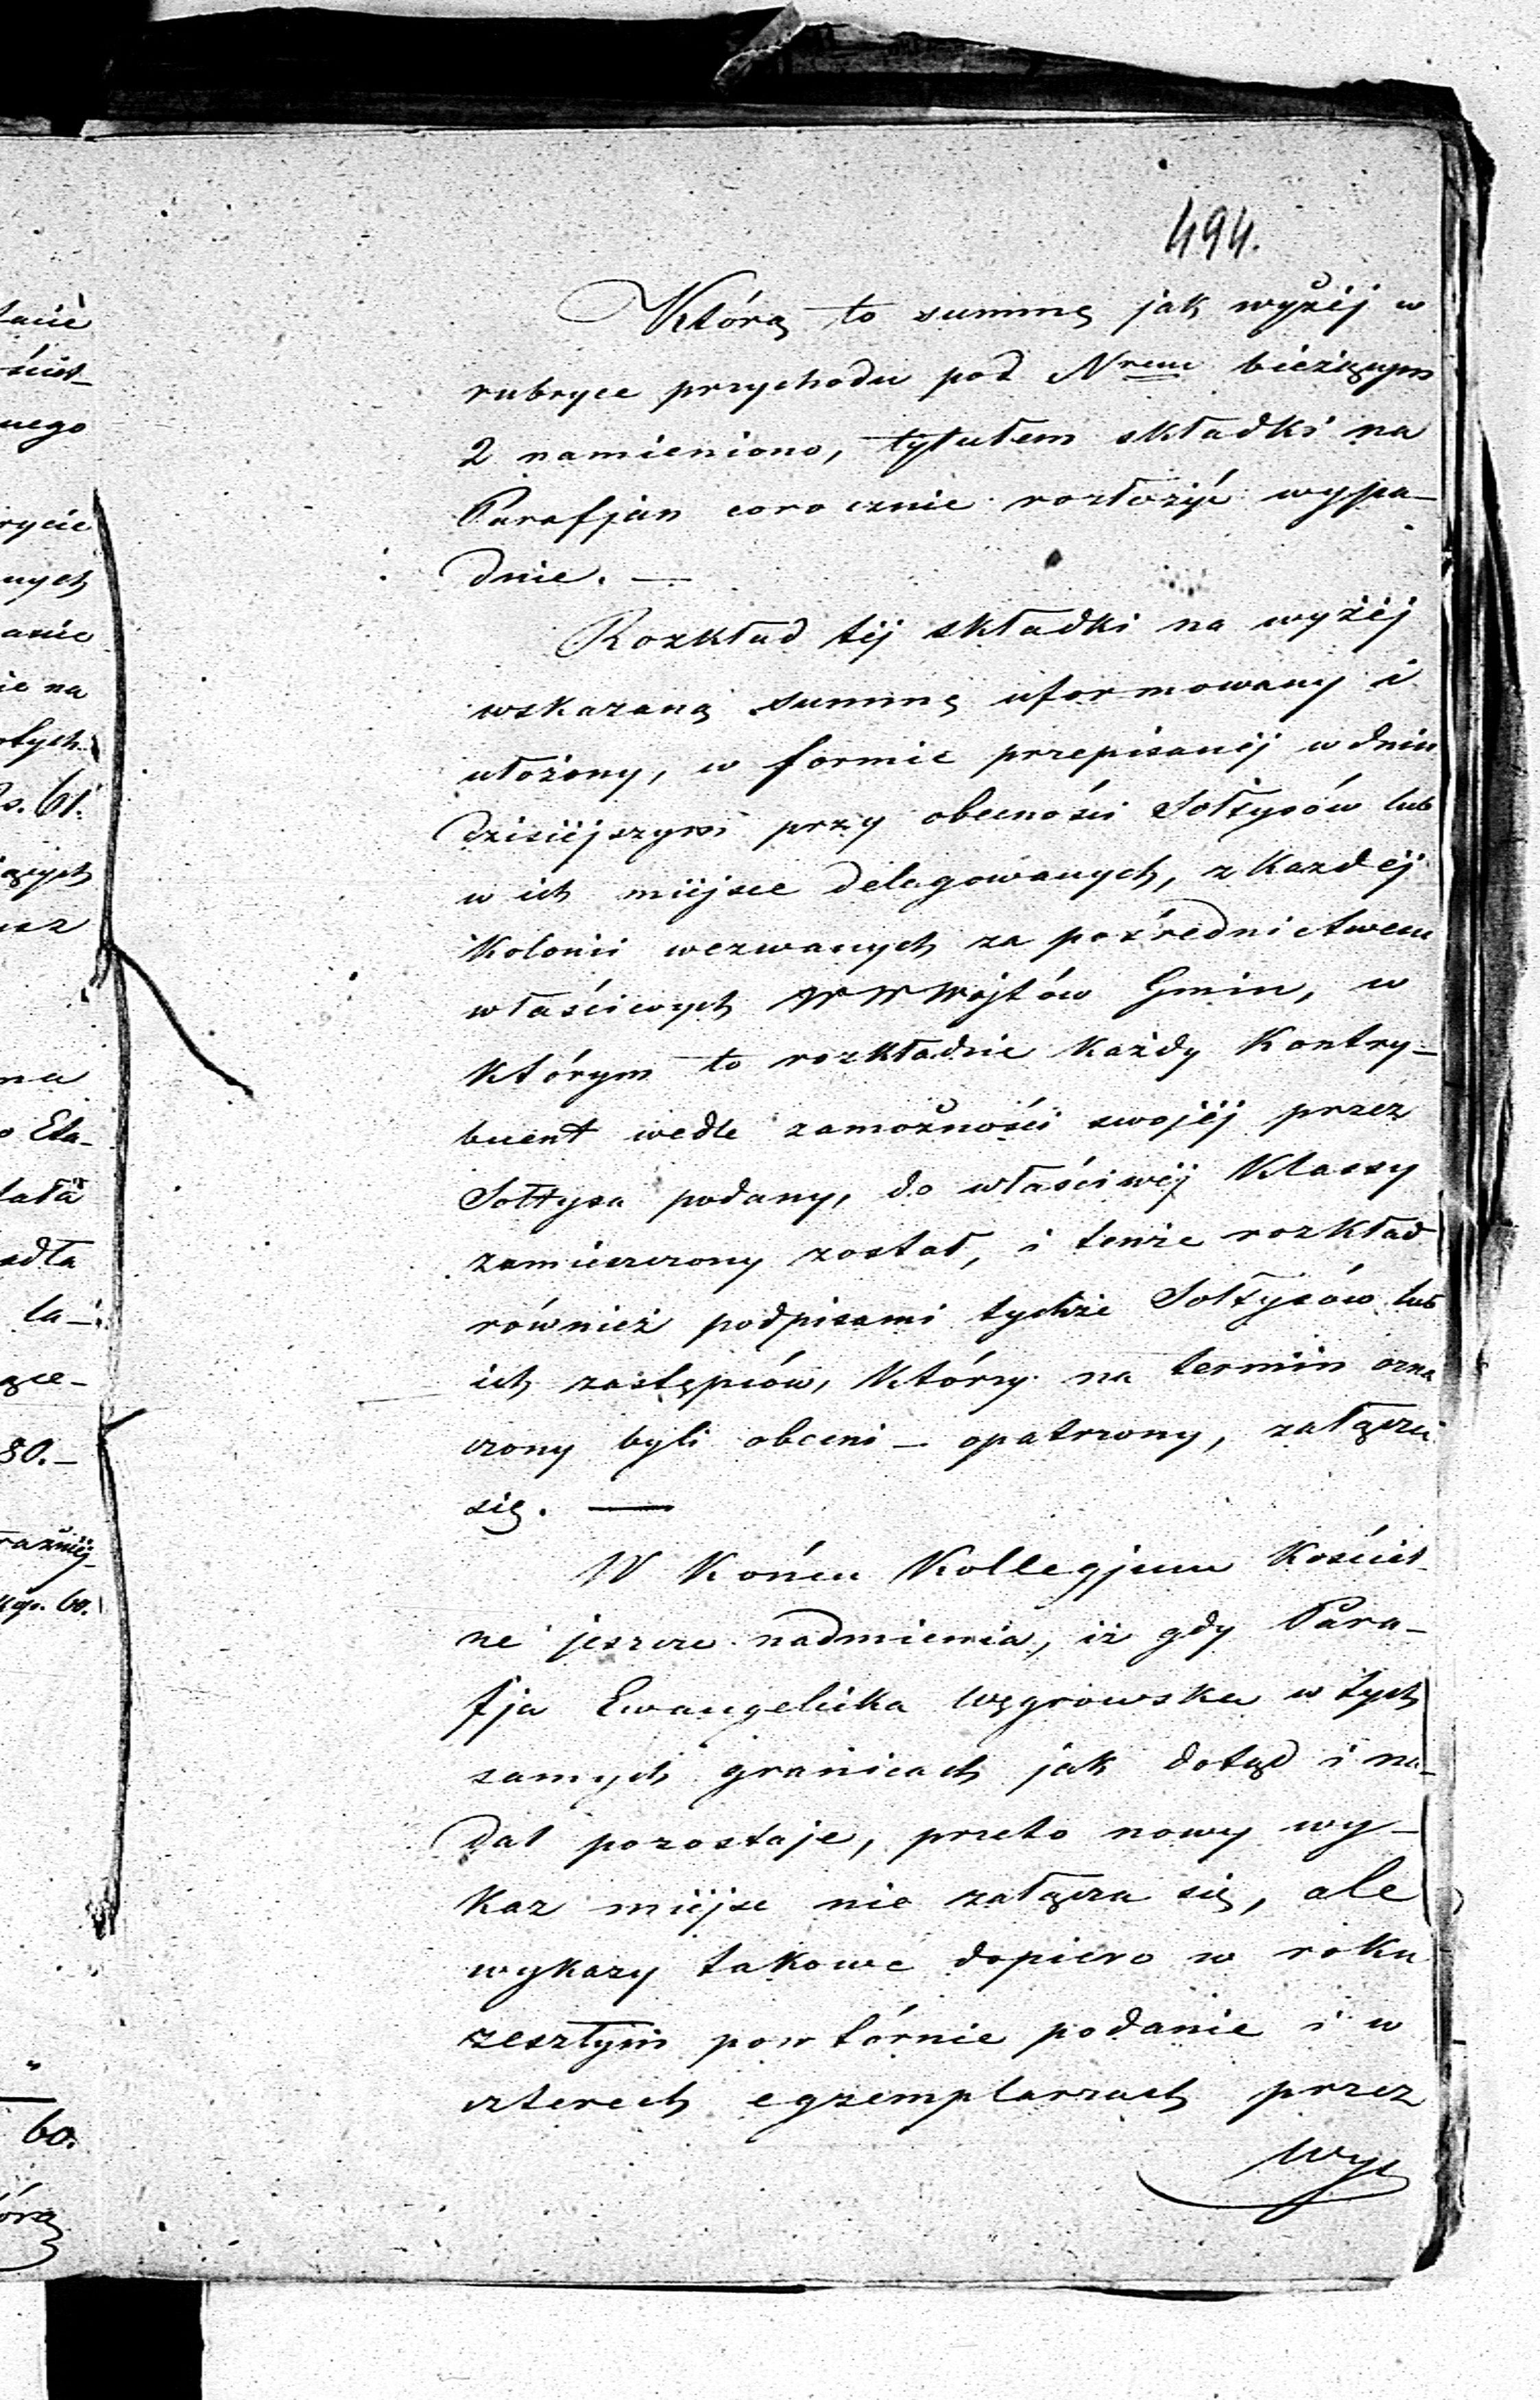 494.
Którą to summę jak wyżéj w
rubryce przychodu pod Nrem bieżącym
2 namieniono, tytułem składki na
Parafjan corocznie rozłożyć wypa-
dnie. —
Rozkład téj składki na wyżéj
wskazaną summę uformowany i
ułożony, w formie przepisanéj w dniu
dzisiéjszym przy obecności Sołtysów lub
w ich miéjsce delegowanych, z każdéj
Kolonii wezwanych za pośrednictwem
właściwych WW Wójtów Gmin, w
którym to rozkładzie każdy Kontry-
buent wedle zamożności swojéj przez
Sołtysa podany, do właściwéj Klassy
zamieszczony został, i tenże rozkład
również podpisami tychże Sołtysów lub
ich zastępców, którzy na termin ozna
czony byli obecni — opatrzony, załącza
się. —
W Końcu Kollegjum Kościel
ne jeszcze nadmienia, iż gdy Para-
fja Ewangelicka Węgrowska w tych
samych granicach jak dotąd i na-
dal pozostaje, przeto nowy wy-
kaz miéjsc nie załącza się, ale
wykazy takowe dopiero w roku
zeszłym powtórnie podanie i w
czterech egzemplarzach przez
Wys
tacie
ściel-
nego
rycie
nych
anie
ie na
otych
s. 61.
ących
na
o Eta-
tała
adła
la-
ące-
80.-
raźniéj-
kop. 60.
"
60.
tórą